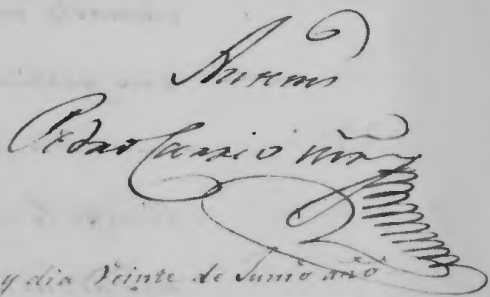 Antemi
Pedro Carrió
y dia Veinte de Junio año